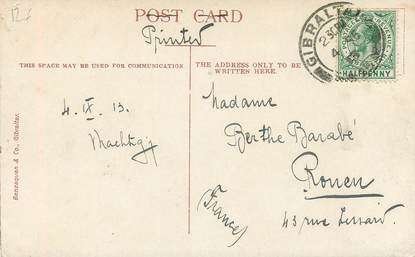 POST CARD
Printed
THIS SPACE MAY BE USED FOR COMMUNICATION
THE ADDRESS ONLY TO BE
WRITTEN HERE.
GIBRALTAR
HALFPENNY
4. IX. 13.
Madame
Berthe Barabé
Rouen
43 rue Lessard.
(France)
Benzaquen & Co., Gibraltar.